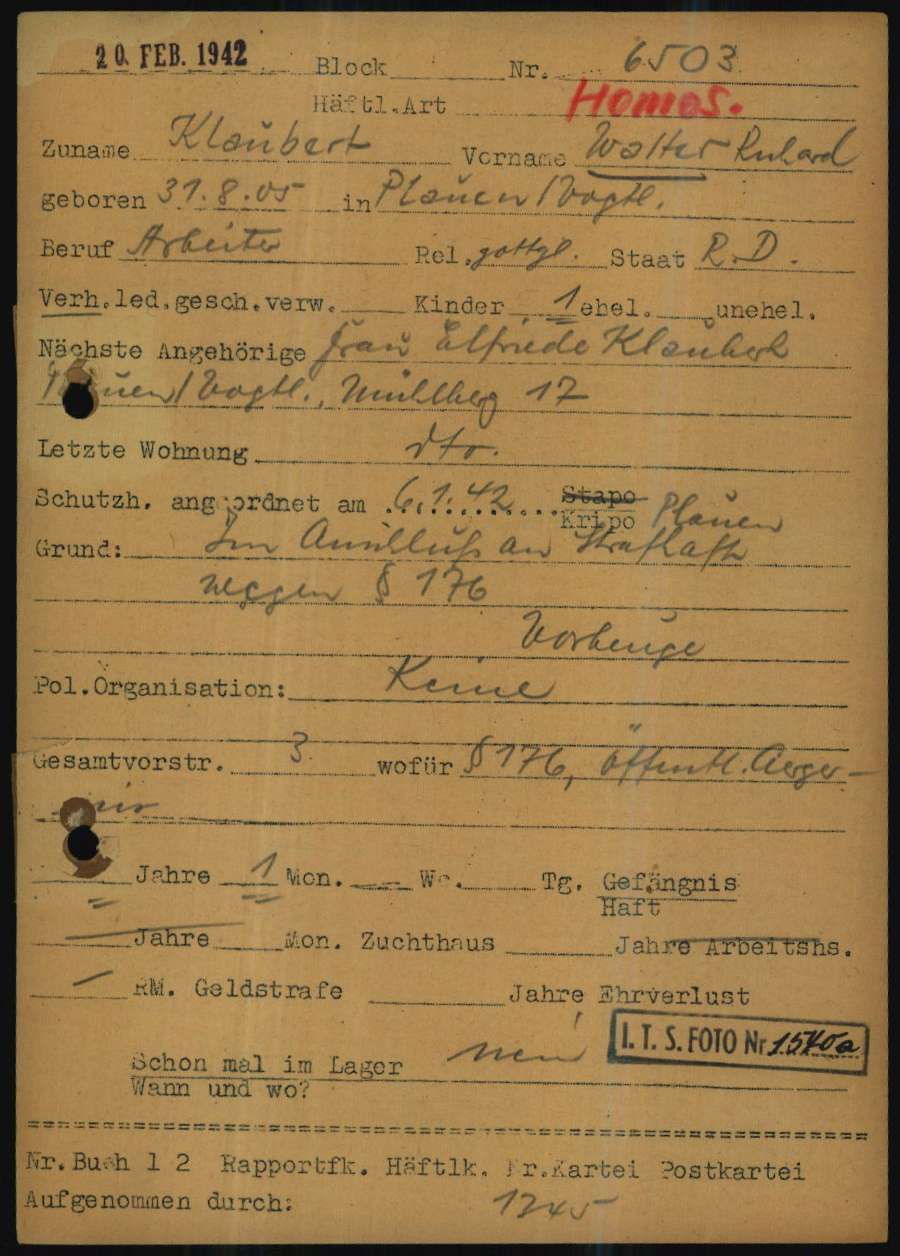 20. FEB. 1942 Block Nr. 6503
Häftl.Art Homos.
Zuname Klaubert Vorname Walter Richard
geboren 31.8.05 in Plauen/Vogtl.
Beruf Arbeiter Rel. gottgl. Staat R.D.
Verh.led.gesch.verw. Kinder 1 ehel. unehel.
Nächste Angehörige Frau Elfriede Klaubert
Plauen/Vogtl., Mühlberg 17
Letzte Wohnung dto.
Schutzh. angeordnet am 6.1.42 Stapo
Kripo Plauen
Grund: Im Anschluß an Strafhaft
wegen § 176
Vorbeuge
Pol.Organisation: Keine
Gesamtvorstr. 3 wofür § 176, öffentl. Aerger-
nis
Jahre 1 Mon. Wo. Tg. Gefängnis
Haft
Jahre Mon. Zuchthaus Jahre Arbeitshs.
RM. Geldstrafe Jahre Ehrverlust
I.T.S. FOTO Nr 1540a
Schon mal im Lager nein
Wann und wo?
Nr.Buch 1 2 Rapportfk. Häftlk. Fr.Kartei Postkartei
Aufgenommen durch: 1245